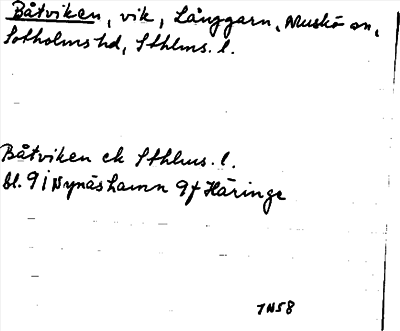 Båtviken, vik, Långgarn, Muskö sn,
Sotholms hd, Sthlms. l.
Båtviken ek Sthlms. l.
bl. 9I Nynäshamn 9f Häringe
1N58